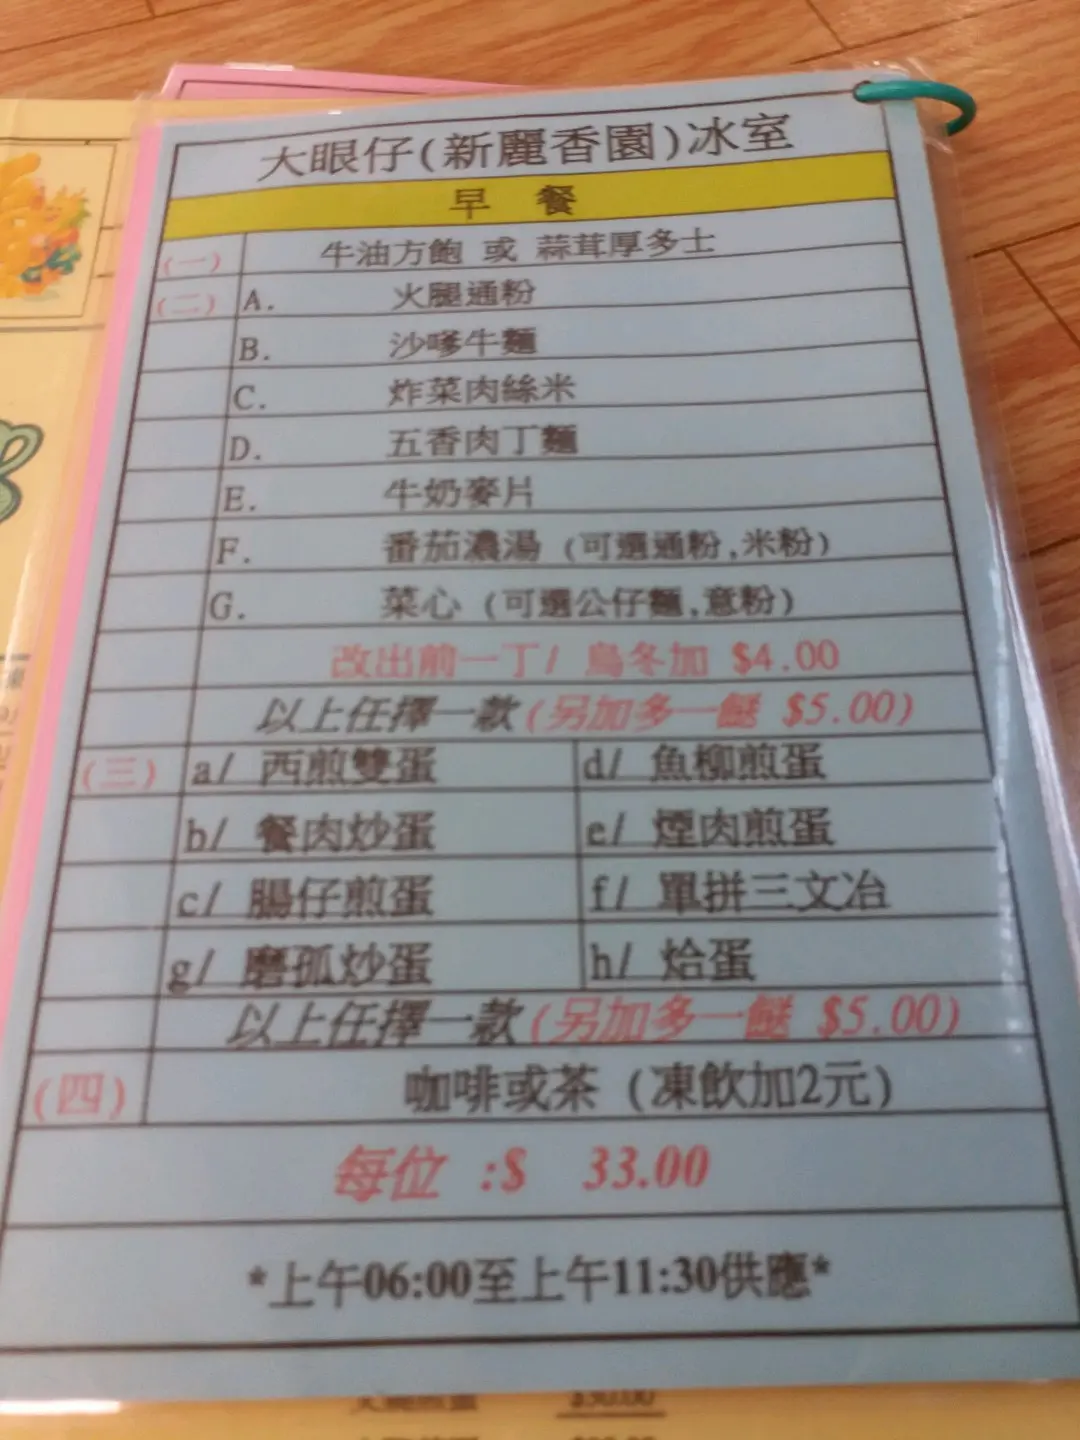 大眼仔(新麗香園)冰室
早 餐
(一) 牛油方飽 或 蒜茸厚多士
(二) A. 火腿通粉
B. 沙嗲牛麵
C. 炸菜肉絲米
D. 五香肉丁麵
E. 牛奶麥片
F. 番茄濃湯 (可選通粉,米粉)
G. 菜心 (可選公仔麵,意粉)
改出前一丁/ 烏冬加 $4.00
以上任擇一款(另加多一餸 $5.00)
(三) a/ 西煎雙蛋 d/ 魚柳煎蛋
b/ 餐肉炒蛋 e/ 煙肉煎蛋
c/ 腸仔煎蛋 f/ 單拼三文冶
g/ 磨孤炒蛋 h/ 烚蛋
以上任擇一款(另加多一餸 $5.00)
(四) 咖啡或茶 (凍飲加2元)
每位 :$ 33.00
*上午06:00至上午11:30供應*